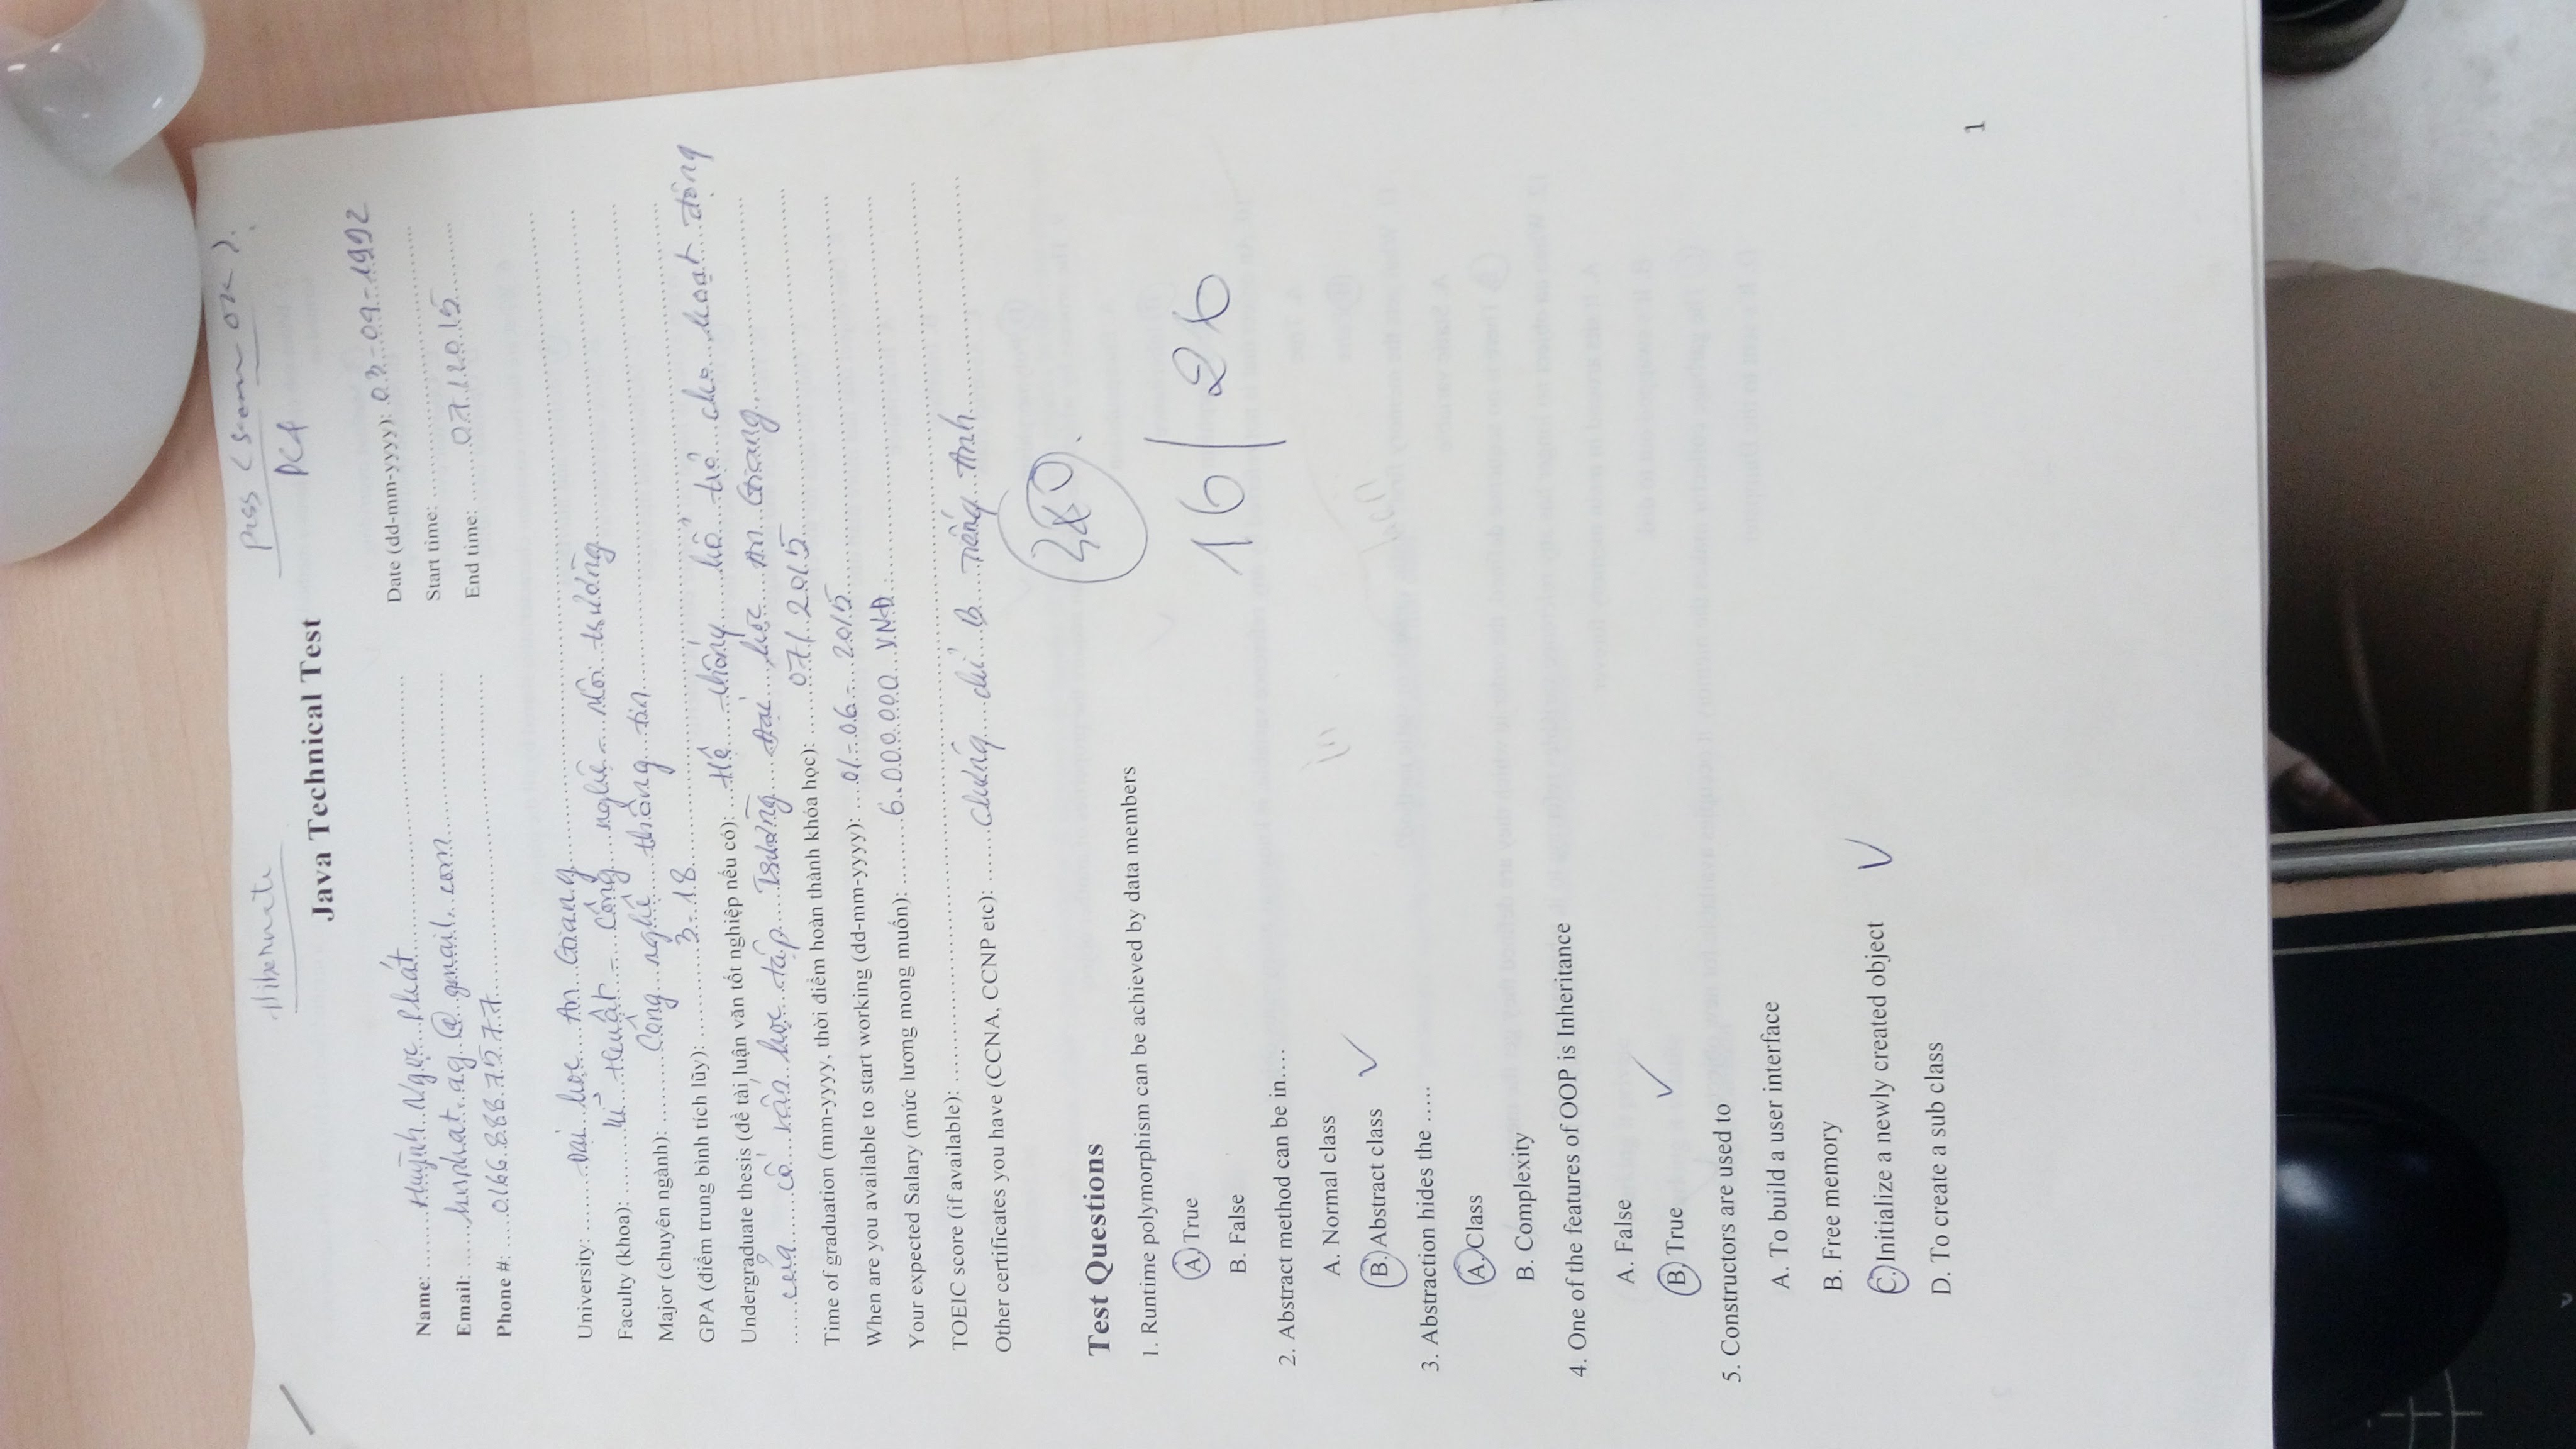 Hibernate
Pass (seem OK).
Java Technical Test
Name: Huỳnh Ngọc Phát
Date (dd-mm-yyyy): 03-09-1992
Email: hnphat.ag@gmail.com
Start time:
Phone #: 0166.888.7577
End time: 07/2015
University: Đại học An Giang
Faculty (khoa): Kĩ thuật - Công nghệ - Môi trường
Major (chuyên ngành): Công nghệ thông tin
GPA (điểm trung bình tích lũy): 3.18
Undergraduate thesis (đề tài luận văn tốt nghiệp nếu có): Hệ thống hỗ trợ cho hoạt động
của cố vấn học tập Trường Đại học An Giang
Time of graduation (mm-yyyy, thời điểm hoàn thành khóa học): 07/2015
When are you available to start working (dd-mm-yyyy): 01-06-2015
Your expected Salary (mức lương mong muốn): 6.000.000 VNĐ
TOEIC score (if available):
Other certificates you have (CCNA, CCNP etc): Chứng chỉ B Tiếng Anh
16 | 26
Test Questions
1. Runtime polymorphism can be achieved by data members
A. True
B. False
2. Abstract method can be in....
A. Normal class
B. Abstract class
3. Abstraction hides the .....
A. Class
B. Complexity
4. One of the features of OOP is Inheritance
A. False
B. True
5. Constructors are used to
A. To build a user interface
B. Free memory
C. Initialize a newly created object
D. To create a sub class
1